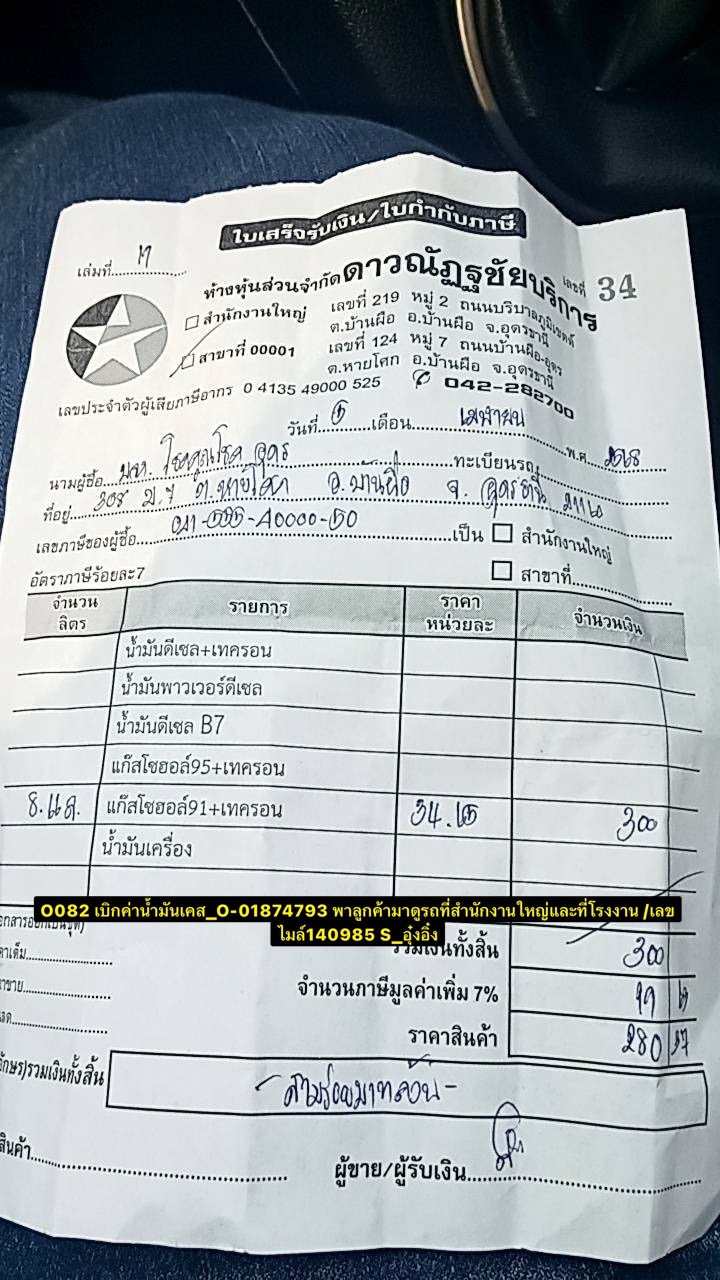 ใบเสร็จรับเงิน/ใบกำกับภาษี
เล่มที่ 17
เลขที่ 34
ห้างหุ้นส่วนจำกัด ดาวณัฏฐชัยบริการ
สำนักงานใหญ่ เลขที่ 219 หมู่ 2 ถนนบริบาลภูมิเขตต์
ต.บ้านผือ อ.บ้านผือ จ.อุดรธานี
สาขาที่ 00001 เลขที่ 124 หมู่ 7 ถนนบ้านผือ-อุดร
ต.หายโศก อ.บ้านผือ จ.อุดรธานี
เลขประจำตัวผู้เสียภาษีอากร 0 4135 49000 525 042-282700
วันที่ 5 เดือน เมษายน พ.ศ. 2568
นามผู้ซื้อ อุดร ทะเบียนรถ
ที่อยู่ 308 ม.7 ต.หายโศก อ.บ้านผือ จ.อุดรธานี
เลขภาษีของผู้ซื้อ เป็น สำนักงานใหญ่
อัตราภาษีร้อยละ7 สาขาที่
จำนวนลิตร รายการ ราคาหน่วยละ จำนวนเงิน
น้ำมันดีเซล+เทครอน
น้ำมันพาวเวอร์ดีเซล
น้ำมันดีเซล B7
แก๊สโซฮอล์95+เทครอน
แก๊สโซฮอล์91+เทครอน 300
น้ำมันเครื่อง
O082 เบิกค่าน้ำมันเคส_O-01874793 พาลูกค้ามาดูรถที่สำนักงานใหญ่และที่โรงงาน /เลข
ไมล์140985 S_อุ๋งอิ๋ง
รวมเงินทั้งสิ้น 300
จำนวนภาษีมูลค่าเพิ่ม 7% 19
ราคาสินค้า 280 37
รวมเงินทั้งสิ้น -สามร้อยบาทถ้วน-
สินค้า
ผู้ขาย/ผู้รับเงิน